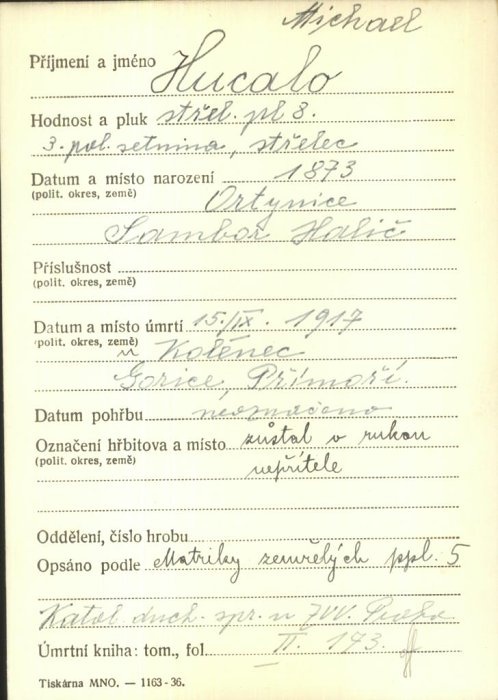 Michael
Příjmení a jméno Hucalo
Hodnost a pluk střel. pl 8.
3. pol. setnina, střelec
Datum a místo narození 1873
(polit. okres, země) Ortynice
Sambor Halič
Příslušnost
(polit. okres, země)
Datum a místo úmrtí 15./IX. 1917
(polit. okres, země) u Kostenec
Gorice, Přímoří.
Datum pohřbu neoznačeno
Označení hřbitova a místo zůstal v rukou
(polit. okres, země) nepřítele
Oddělení, číslo hrobu
Opsáno podle Matriky zemřelých ppl. 5
Katol duch. spr. u ZVV. Praha
Úmrtní kniha: tom., fol. II. 143.
Tiskárna MNO. — 1163-36.